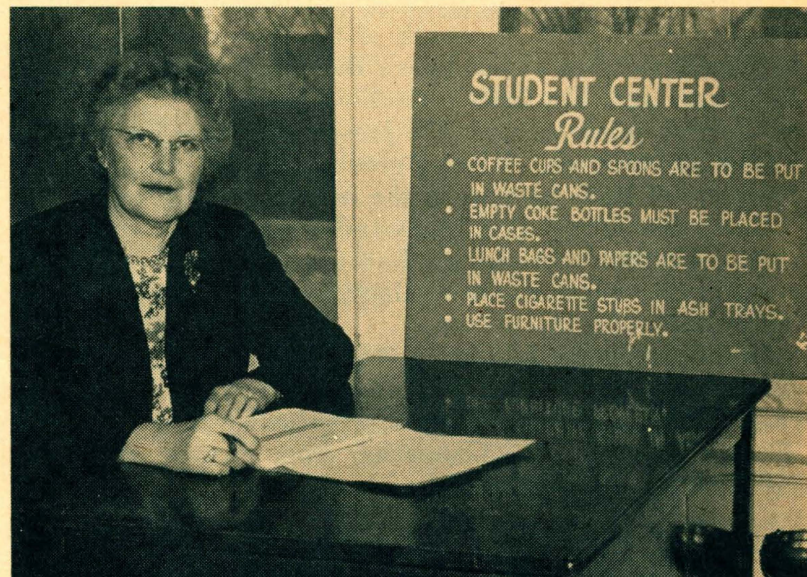 STUDENT CENTER
Rules
• COFFEE CUPS AND SPOONS ARE TO BE PUT
IN WASTE CANS.
• EMPTY COKE BOTTLES MUST BE PLACED
IN CASES.
• LUNCH BAGS AND PAPERS ARE TO BE PUT
IN WASTE CANS.
• PLACE CIGARETTE STUBS IN ASH TRAYS.
• USE FURNITURE PROPERLY.